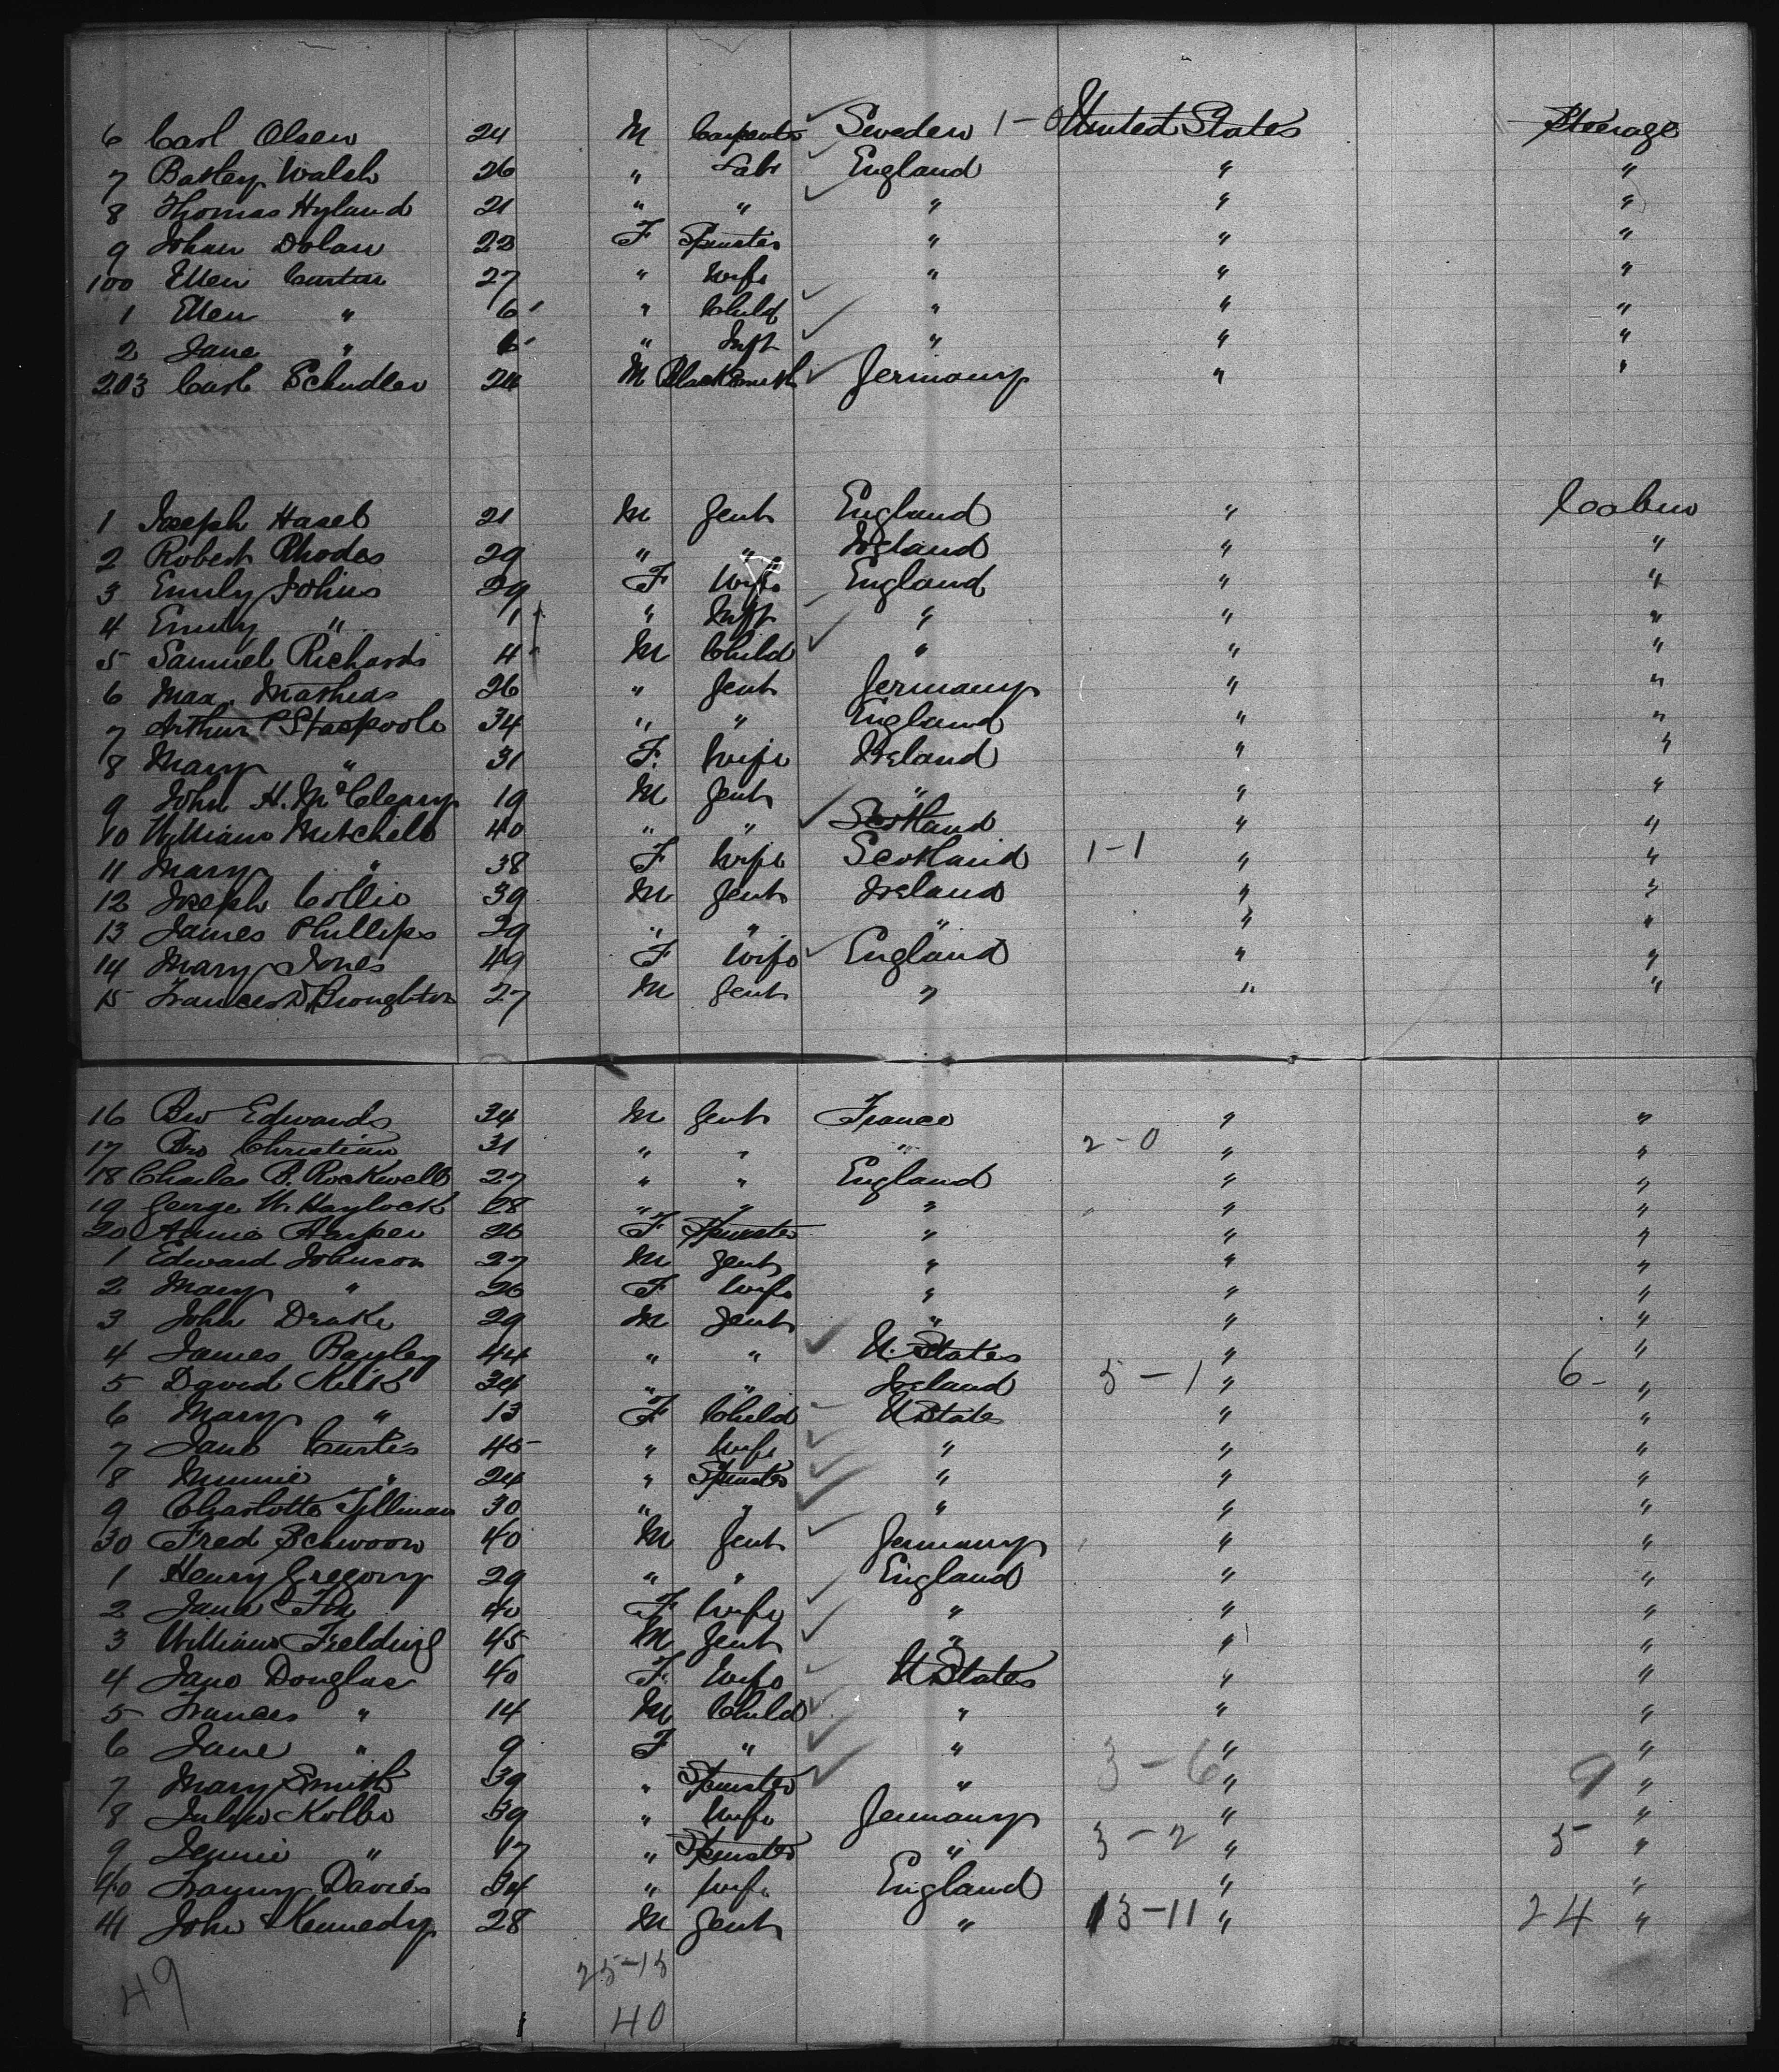 6 Carl Olsen 24 M Carpenter Sweden 1 - United States Steerage
7 Batley Walsh 26 " Labr England " "
8 Thomas Hyland 21 " " " " "
9 Johan Dolan 22 F Spinster " " "
100 Ellen Curtin 27 " Wife " " "
1 Ellen " 6 " Child " " "
2 Jane " 6 " Inft " " "
203 Carl Schudler 24 M Blacksmith Germany " "
1 Joseph Hasel 21 M Gent England " Cabin
2 Robert Rhodes 29 " " Ireland " "
3 Emily Johns 29 F Wife England " "
4 Emily " 1 " Inft " " "
5 Samuel Richards 4 M Child " " "
6 Max Mathias 26 " Gent Germany " "
7 Arthur P Stacpoole 34 " " England " "
8 Mary " 31 F. Wife Ireland " "
9 John H. McCleary 19 M Gent " " "
10 William Mitchell 40 " " Scotland " "
11 Mary " 38 F Wife Scotland 1-1 " "
12 Joseph Collie 39 M Gent Ireland " "
13 James Phillips 29 " " " " "
14 Mary Jones 49 F Wife England " "
15 Frances Broughton 27 M Gent " " "
16 Bro Edwards 34 M Gent France " "
17 Bro Christian 31 " " " 2-0 " "
18 Charles B. Rockwell 27 " " England " "
19 George W. Haylock 28 " " " " "
20 Annie Harper 26 F Spinster " " "
1 Edward Johnson 27 M Gent " " "
2 Mary " 26 F Wife " " "
3 John Drake 29 M Gent " " "
4 James Bayley 44 " " U. States " "
5 David Kirk 34 " " Ireland 5-1 " 6- "
6 Mary " 13 F Child U States " "
7 Jane Curtis 45 " Wife " " "
8 Minnie " 24 " Spinster " " "
9 Charlotte Tillman 30 " " " " "
30 Fred Schwoon 40 M Gent Germany " "
1 Henry Gregory 29 " " England " "
2 Jane Fox 40 F Wife " " "
3 William Fielding 45 M Gent " " "
4 Jane Douglas 40 F. Wife U States " "
5 Frances " 14 M Child " " "
6 Jane " 9 F " " " "
7 Mary Smith 39 " Spinster " 3-6 " 9 "
8 Julia Kolbe 39 " Wife Germany " "
9 Jennie " 17 " Spinster " 3-2 " 5 "
40 Fanny Davies 34 " Wife England " "
41 John Kennedy 28 M Gent " 13-11 " 24 "
49 25-15
40